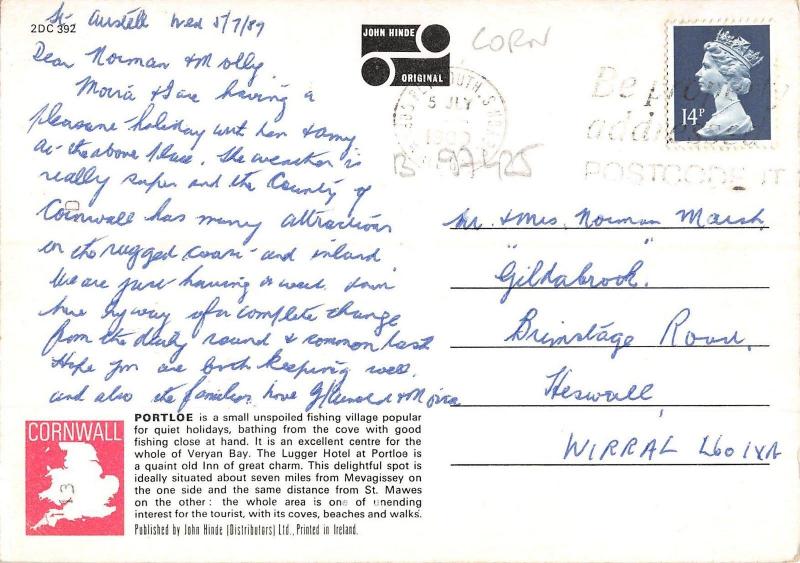 2DC 392
St Austell Wed 5/7/89
Dear Norman & Molly
Moira & I are having a
pleasure holiday with Len & Amy
at the above place. The weather is
really super and the County of
Cornwall has many attractions
on the rugged coast and inland
We are just having a week down
here by way of a complete change
from the daily round & common task
Hope you are both keeping well
and also the families love Harold & Moira
JOHN HINDE
ORIGINAL
CORN
5 JLY
Be properly
addressed
POSTCODE IT
14P
B 97425
Mr. & Mrs. Norman Marsh,
"Gildabrook"
Brimstage Road,
Heswall,
WIRRAL L60 1XA
CORNWALL
13
PORTLOE is a small unspoiled fishing village popular
for quiet holidays, bathing from the cove with good
fishing close at hand. It is an excellent centre for the
whole of Veryan Bay. The Lugger Hotel at Portloe is
a quaint old Inn of great charm. This delightful spot is
ideally situated about seven miles from Mevagissey on
the one side and the same distance from St. Mawes
on the other: the whole area is one of unending
interest for the tourist, with its coves, beaches and walks.
Published by John Hinde (Distributors) Ltd., Printed in Ireland.